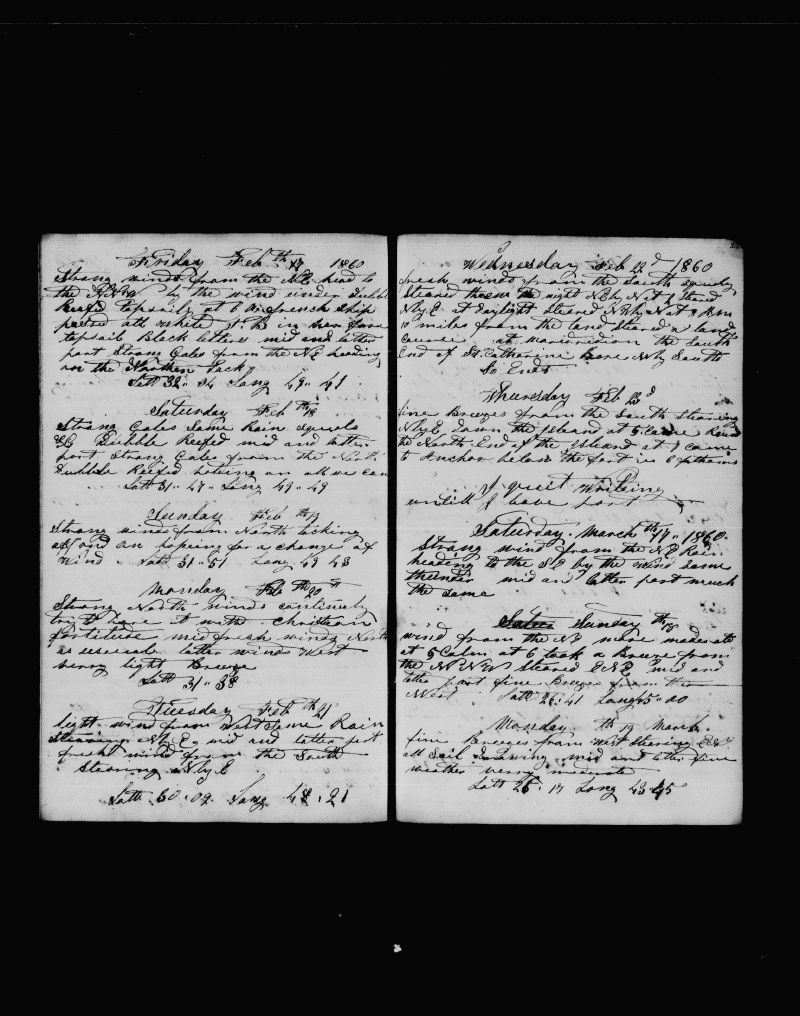 Friday Feb th 17 1860
Strong winds from the NE head to
the by the wind under Dubble
Reefd topsails at 6 a french Ship
passed all white J.B in her fore
topsail Black letters mid and latter
part Strong Gales from the NE heading
on the Northen tack
Latt 32 " 34 Long 49 " 41
Saturday Feb th 18
Strong Gales Same Rain Squals
&C Dubble Reefed mid and latter
part Strong Gales from the North
Dubble Reefed on all we can
Latt 31 " 47 " Long 49 " 49
Sunday Feb th 19
Strong winds from North tacking
off and on hopeing for a change of
Wind Latt 31 " 51 Long 49 43
Monday Feb 20 th
Strong North winds continuely
try to bare it with Christian
fortitude mid fresh winds North
as useual latter winds West
verry light Breeze
Latt 31 " 38
Tuesday Feb th 21
light wind from West Some Rain
Stearing N by E mid and latter part
fresh wind from the South
Stearing N by E
Latt 30 " 09 Long 48 " 21
Wednesday Feb 22 d 1860
fresh winds from the South squaly
Steared the night NE by N at 4 Steard
N by E at daylight Steared N by N at 9 Am
10 miles from the land Steared a land
Course at the South
End of St Catharine Bore N by South
So Ends
Thursday Feb 23 d
fine Breezes from the South Stearing
N by E down the Island at 5 Came Round
the North End of the Island at 7 Came
to Anchor below the fort in 6 fathoms
I quit Writing
untill I leave port
Saturday March th 17 " 1860
Strong wind from the NE Rain
heading to the SE by the wind Some
thunder mid and latter part much
the Same
Satur Sunday th 18
wind from the NE more moderate
at 5 Calm at 6 took a Breeze from
the NNW Steared ENE mid and
latter part fine Breezes from the
West Latt 26 " 41 Long 45 " 00
Monday th 19 March
fine Breezes from West Stearing ENE
all Sail Drawing mid and latter fine
weather verry moderate
Latt 26 " 17 Long 43 " 45